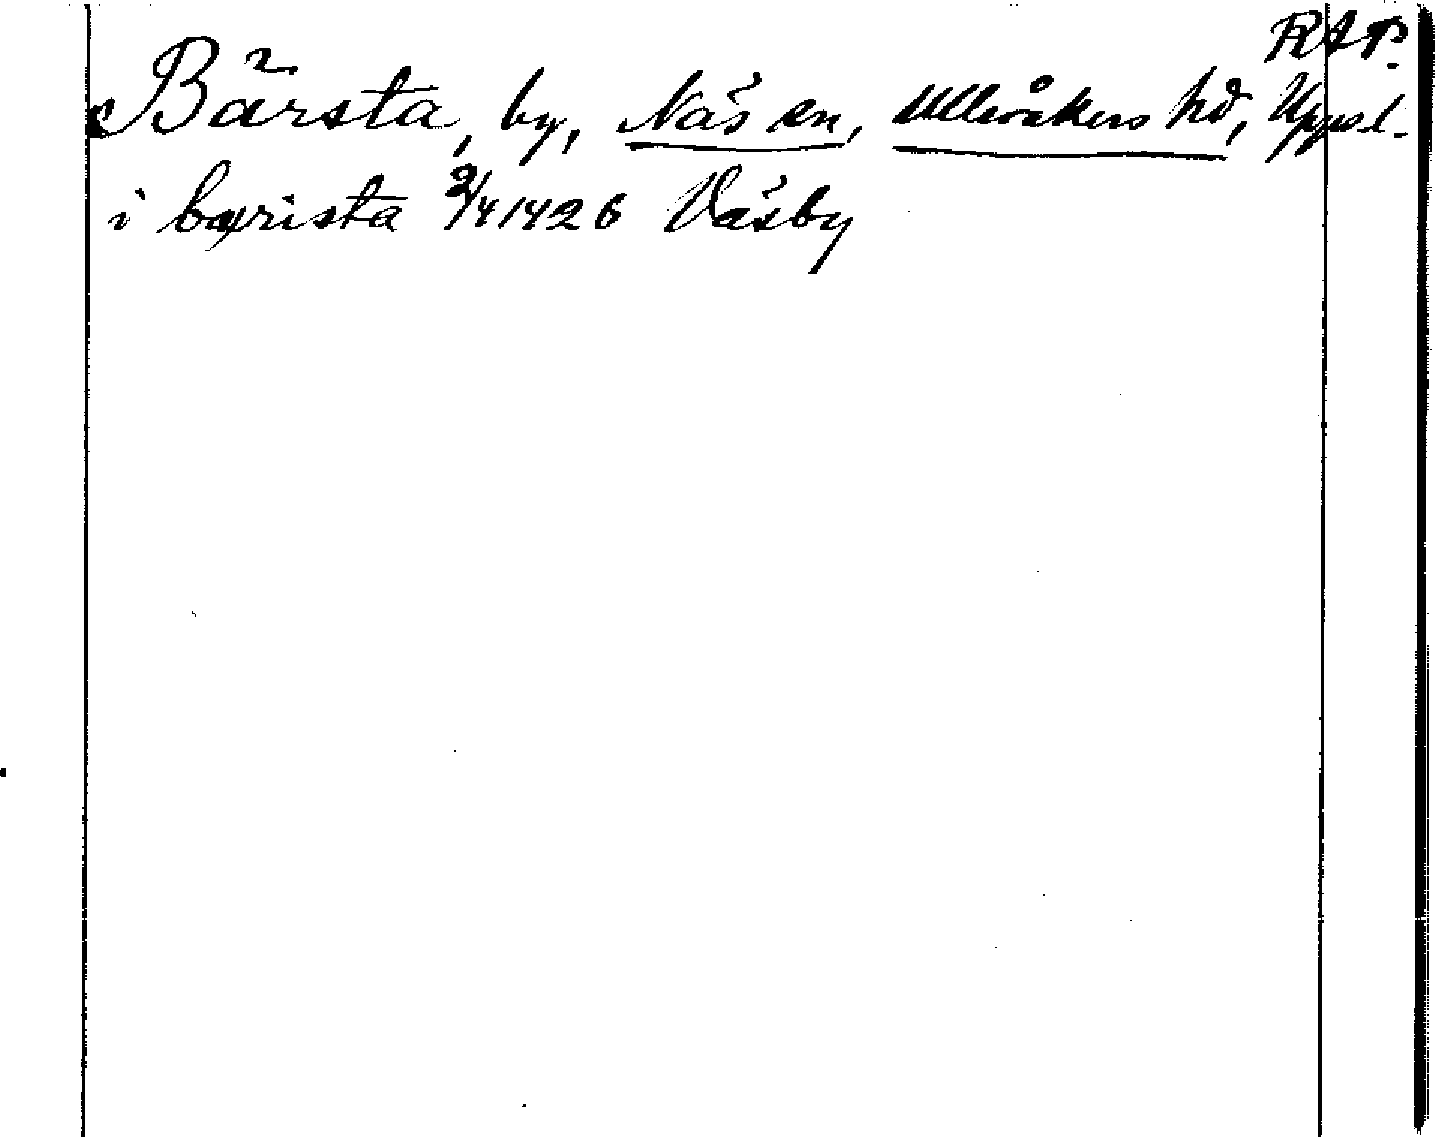 RAP.
Bärsta, by, Näs sn, Ulleråkers hd, Uppsl.
i bærista 2/4 1426 Väsby